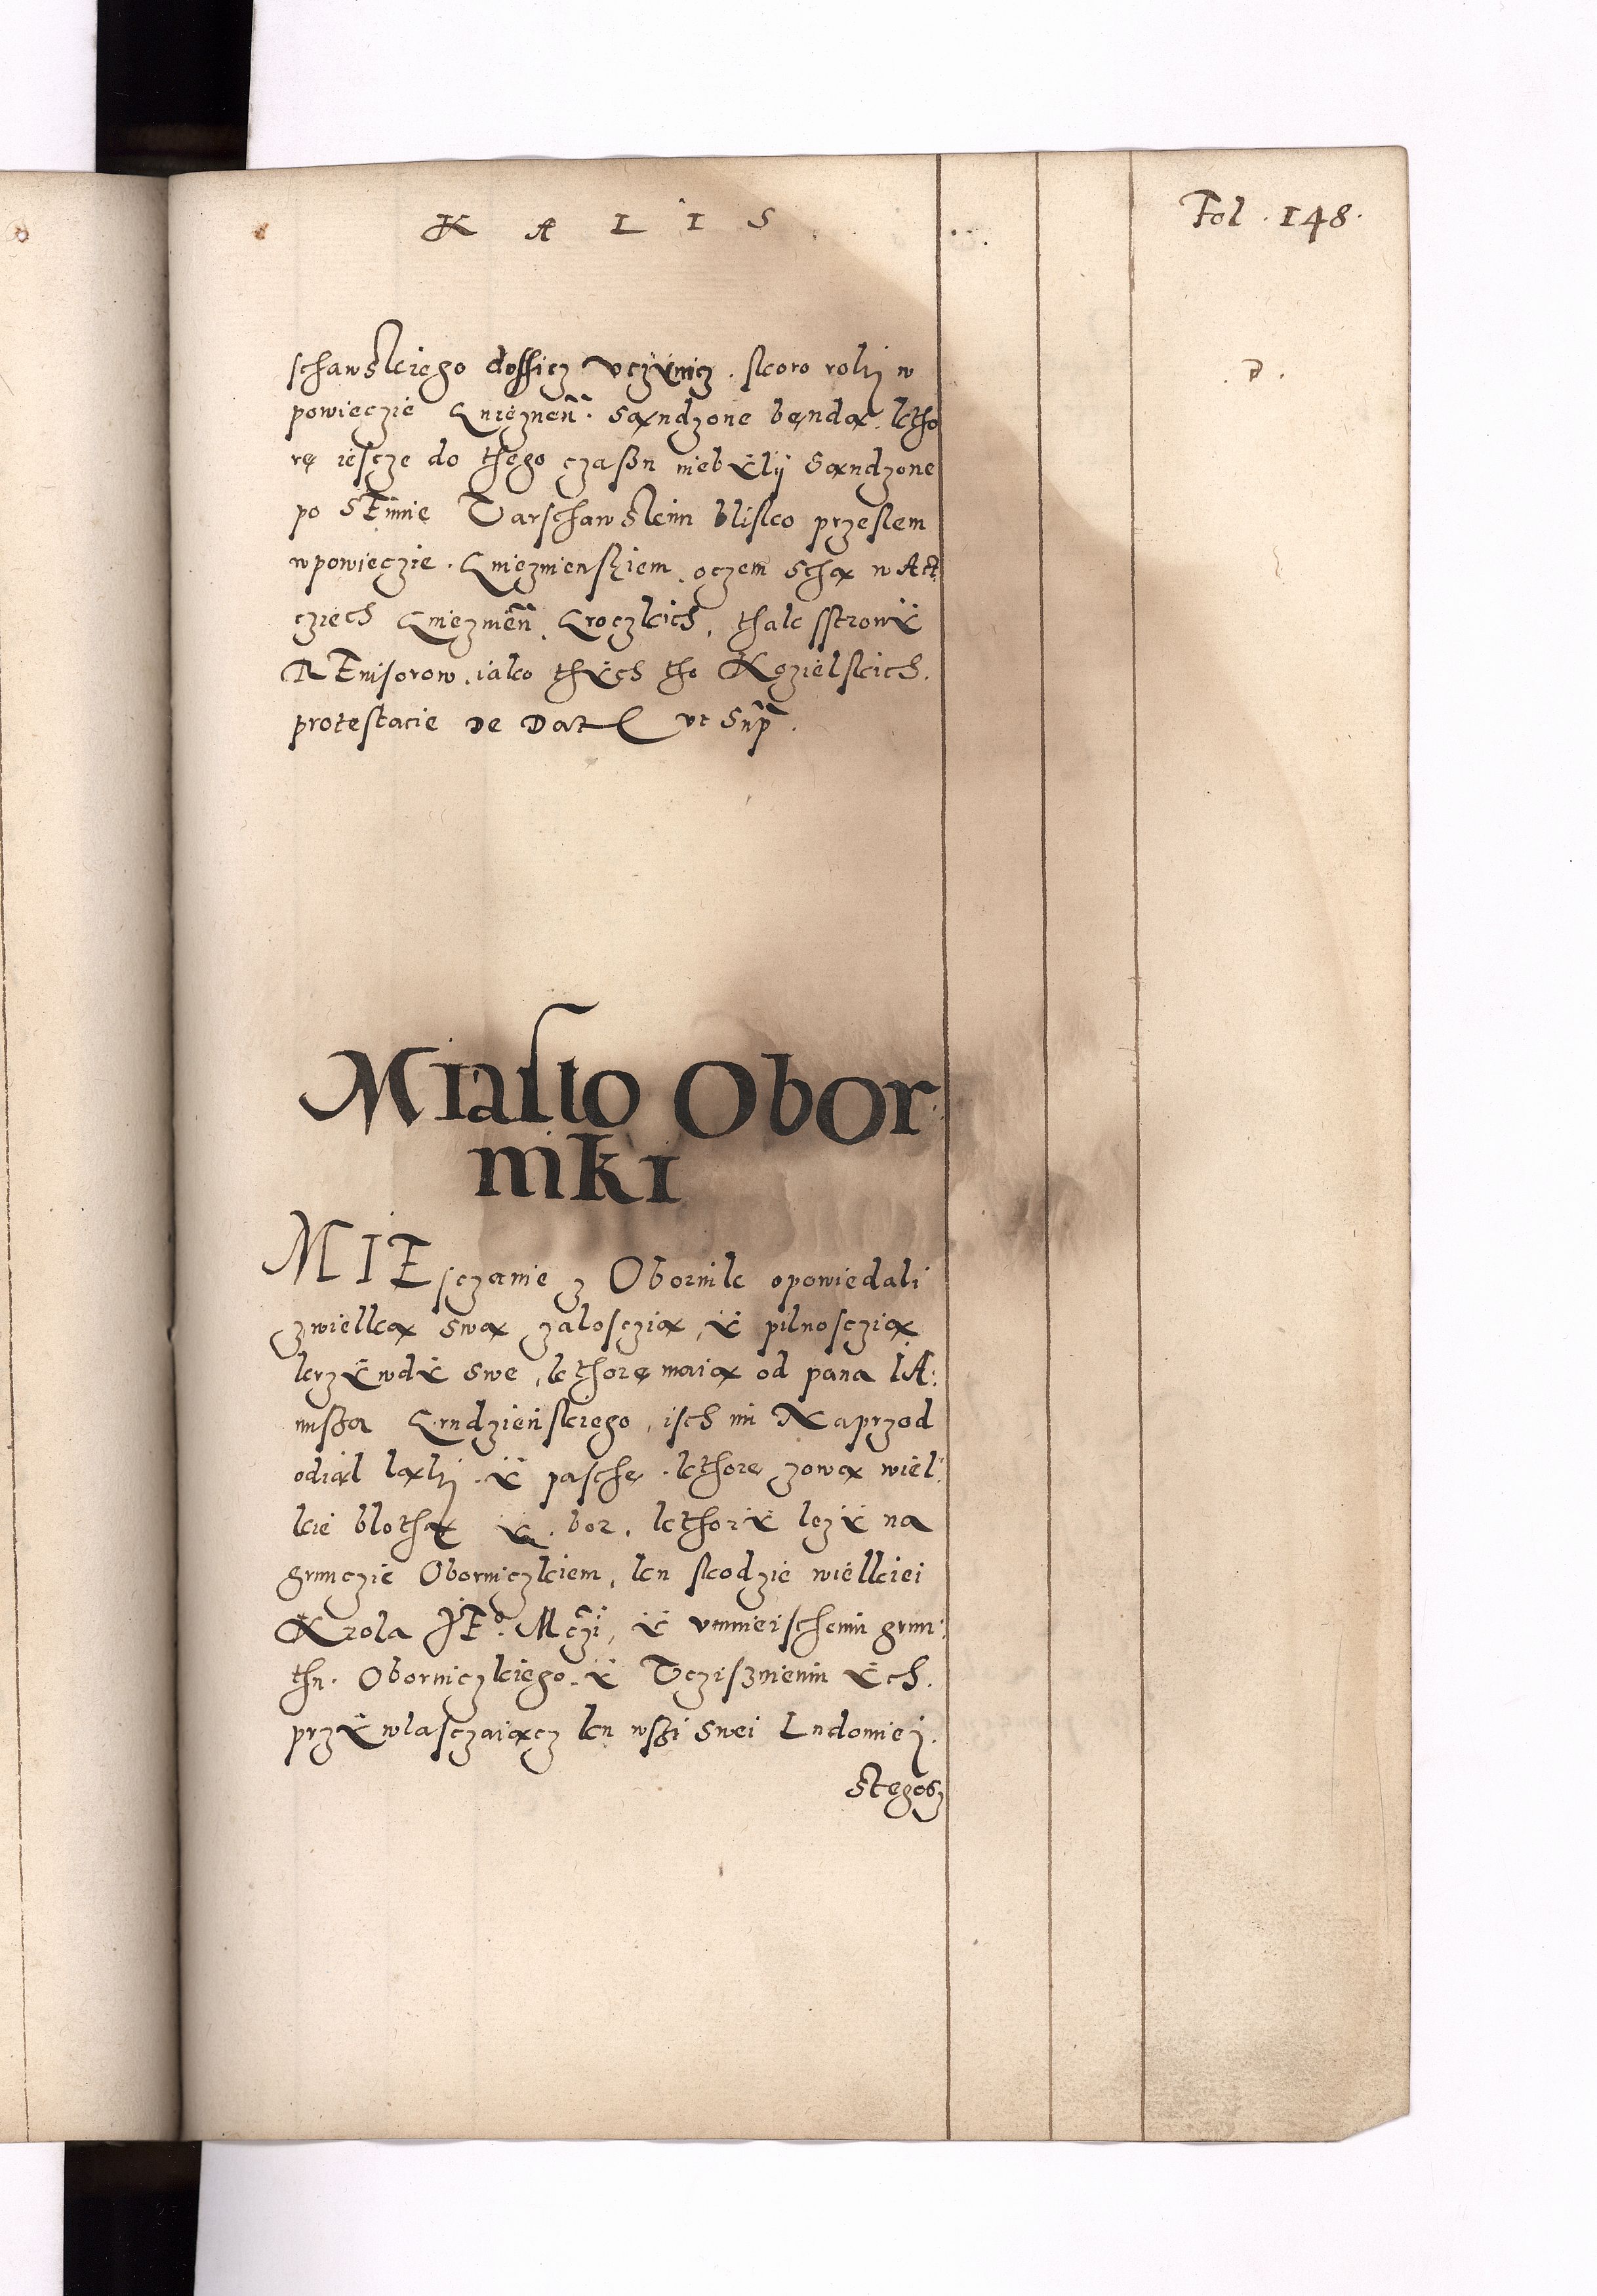 K A L I S
Fol. 148.
schawskiego dossicz vczÿnicz. skoro rokÿ w
powieczie Gniezneñ. Sądzone bęndą. ktho
rę iescze do thego czaßu niebÿlÿ Sąndzone
po SEimie Varschawskim blisko przeslem
w powieczie. Gniezmenskiem oczem Schą w Act
cziech Gniezmeñ. Groczkich, thak sstronÿ
REuisorow. iako thÿch tho Kozielskich.
protestacie De Dat vt Sup̃.
Miasto Obor
niki
MIEsczanie z Obornik opowiedali
z wielką swą zalosczią, ÿ pilnosczią
krzÿwdÿ swe, kthorę maią od pana IA:
nusza Grudzieńskiego, isch im Naprzod
odiął ląkÿ. ÿ paschę. kthorę zową wiel:
kie blotha ÿ. bor. kthorÿ lezÿ na
grunczie Oborniczkiem, ku skodzie wielkiei
Krola JEº. Mczi, ÿ vmnieischeniu grun:
thu. Oborniczkiego. ÿ Vczisznieniu ÿch.
przÿwlasczaiącz ku wszi swei Ludomiej.
Stegosz